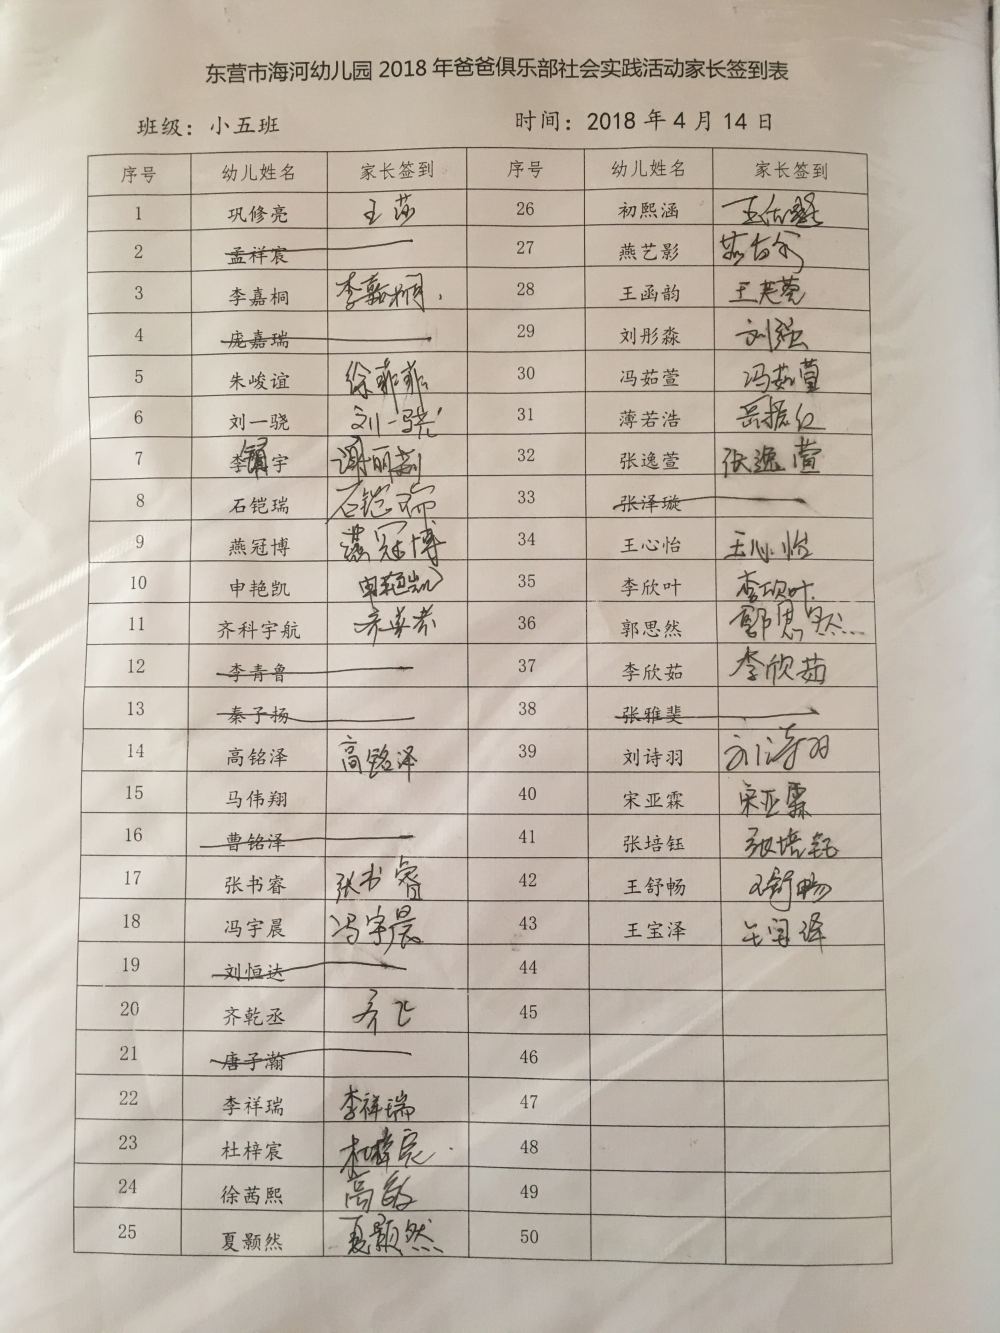 东营市海河幼儿园 2018 年爸爸俱乐部社会实践活动家长签到表
班级：小五班 时间：2018 年 4 月 14 日
序号 幼儿姓名 家长签到 序号 幼儿姓名 家长签到
1 巩修亮 王莎 26 初熙涵
2 孟祥宸 27 燕艺影
3 李嘉桐 李嘉桐 28 王函韵 王芙蓉
4 庞嘉瑞 29 刘彤淼 刘强
5 朱峻谊 徐菲菲 30 冯茹萱 冯茹萱
6 刘一骁 刘一骁 31 薄若浩 岳振红
7 李镇宇 谢丽莉 32 张逸萱 张逸萱
8 石铠瑞 石铠瑞 33 张泽璇
9 燕冠博 燕冠博 34 王心怡 王心怡
10 申艳凯 申艳凯 35 李欣叶 李欣叶
11 齐科宇航 36 郭思然 郭思然
12 李青鲁 37 李欣茹 李欣茹
13 秦子扬 38 张雅斐
14 高铭泽 高铭泽 39 刘诗羽 刘诗羽
15 马伟翔 40 宋亚霖 宋亚霖
16 曹铭泽 41 张培钰 张培钰
17 张书睿 张书睿 42 王舒畅 王舒畅
18 冯宇晨 冯宇晨 43 王宝泽 王宝泽
19 刘恒达 44
20 齐乾丞 齐飞 45
21 唐子瀚 46
22 李祥瑞 李祥瑞 47
23 杜梓宸 杜梓宸 48
24 徐茜熙 高敏 49
25 夏颢然 夏颢然 50